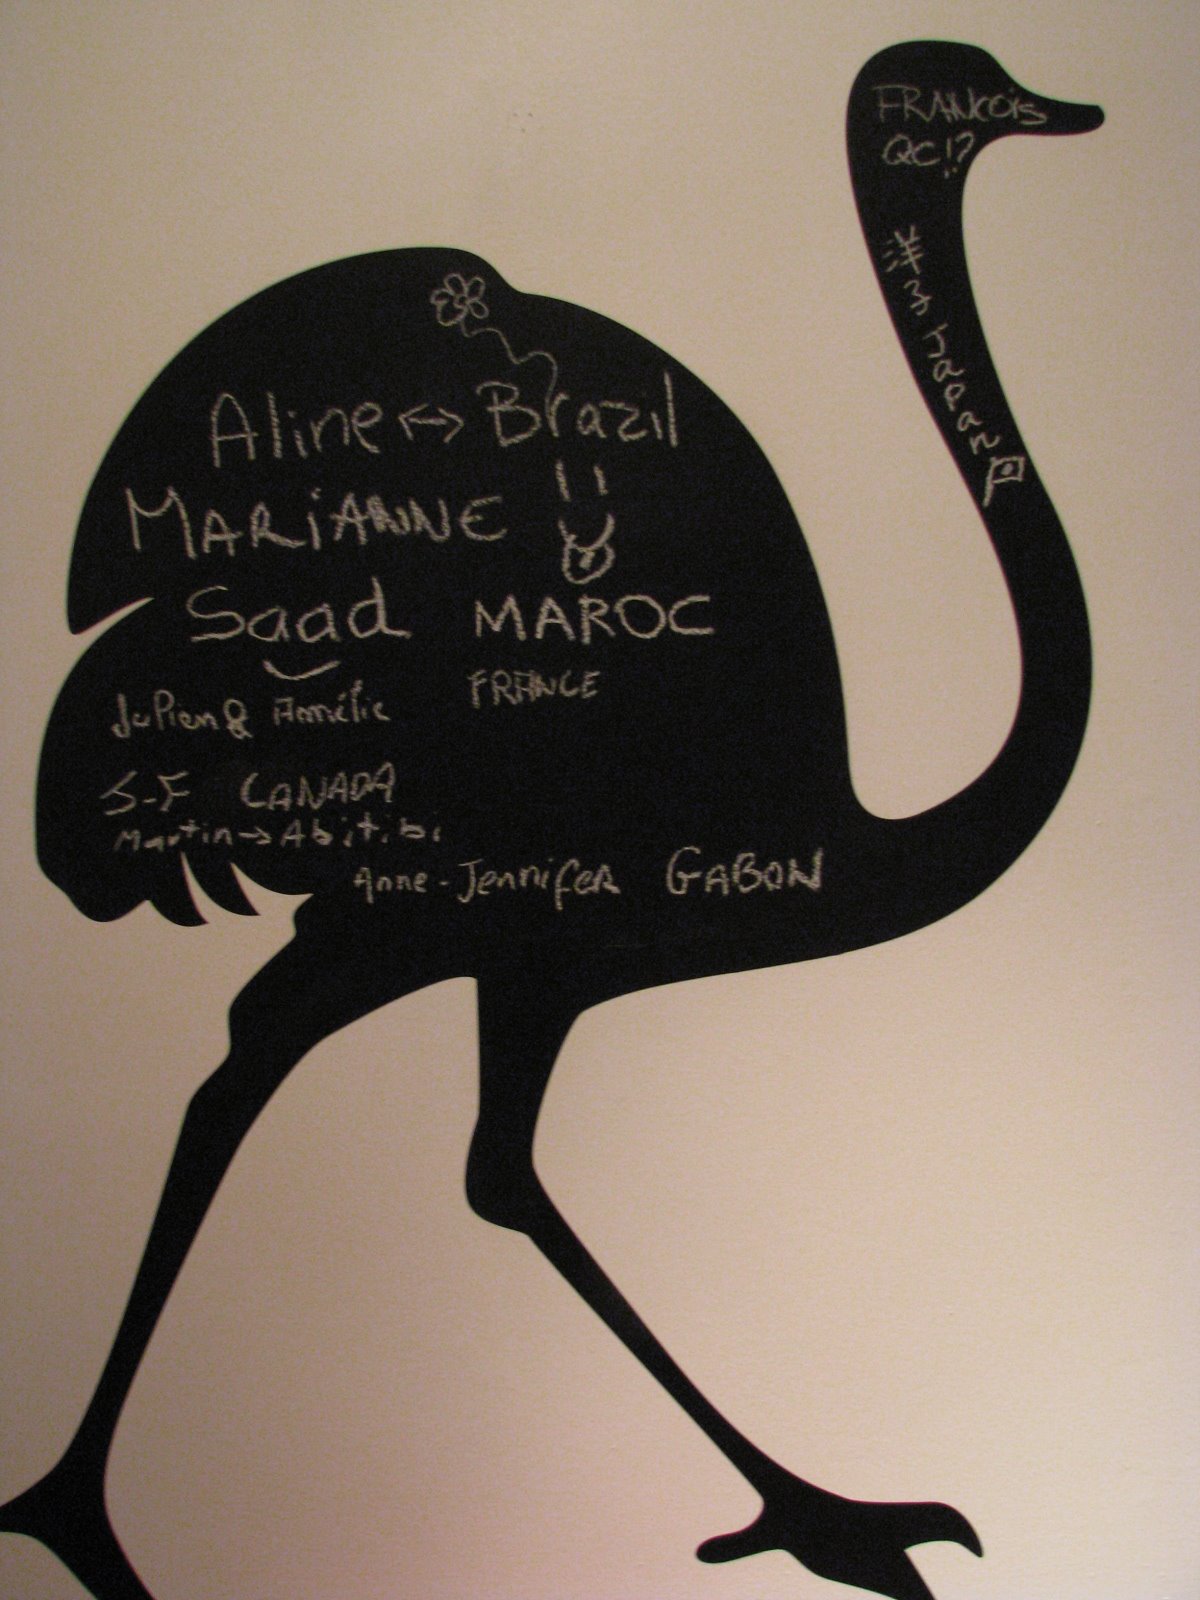 FRANCOIS
QC!?
洋子 Japan
Aline ↔ Brazil
MARiANNE
Saad MAROC
Julien & Amélie FRANCE
S-F CANADA
Martin → Abitibi
Anne-Jennifer GABON